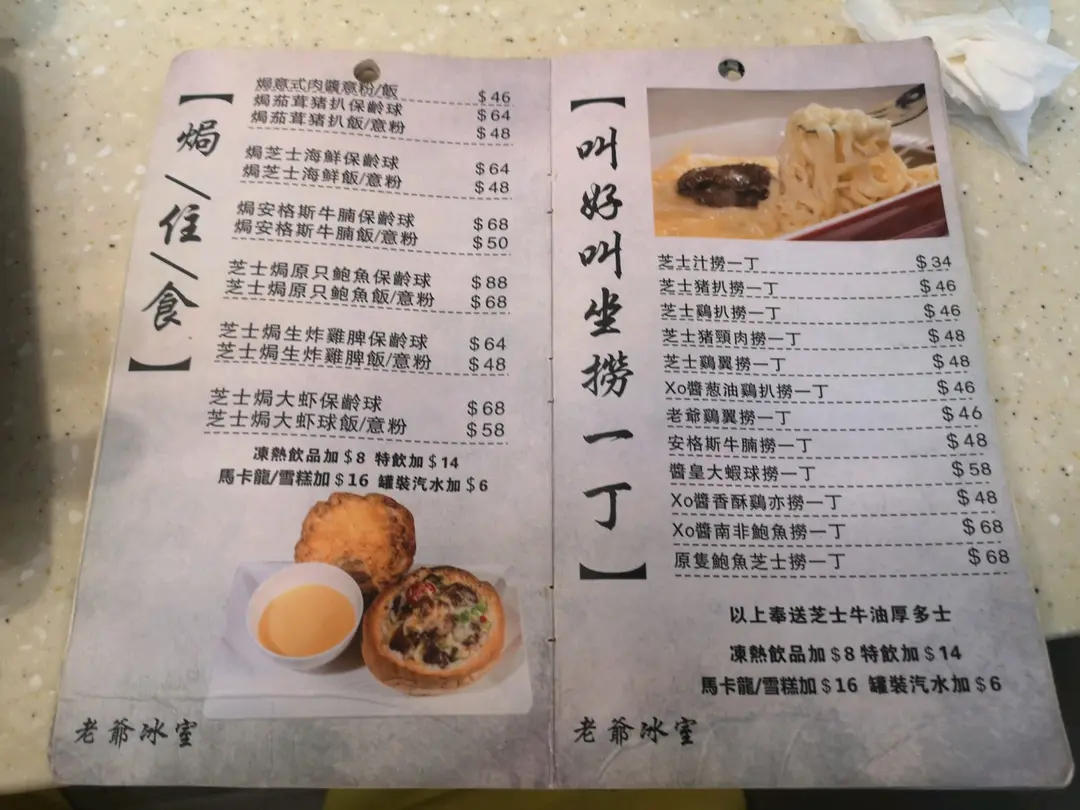 【焗／住／食】
焗意式肉醬意粉/飯 $46
焗茄茸猪扒保齡球 $64
焗茄茸猪扒飯/意粉 $48
焗芝士海鮮保齡球 $64
焗芝士海鮮飯/意粉 $48
焗安格斯牛腩保齡球 $68
焗安格斯牛腩飯/意粉 $50
芝士焗原只鮑魚保齡球 $88
芝士焗原只鮑魚飯/意粉 $68
芝士焗生炸雞脾保齡球 $64
芝士焗生炸雞脾飯/意粉 $48
芝士焗大虾保齡球 $68
芝士焗大虾球飯/意粉 $58
凍熱飲品加$8 特飲加$14
馬卡龍/雪糕加$16 罐裝汽水加$6
老爺冰室
【叫好叫坐撈一丁】
芝士汁撈一丁 $34
芝士猪扒撈一丁 $46
芝士鷄扒撈一丁 $46
芝士猪頸肉撈一丁 $48
芝士鷄翼撈一丁 $48
Xo醬葱油鷄扒撈一丁 $46
老爺鷄翼撈一丁 $46
安格斯牛腩撈一丁 $48
醬皇大蝦球撈一丁 $58
Xo醬香酥鷄亦撈一丁 $48
Xo醬南非鮑魚撈一丁 $68
原隻鮑魚芝士撈一丁 $68
以上奉送芝士牛油厚多士
凍熱飲品加$8 特飲加$14
馬卡龍/雪糕加$16 罐裝汽水加$6
老爺冰室